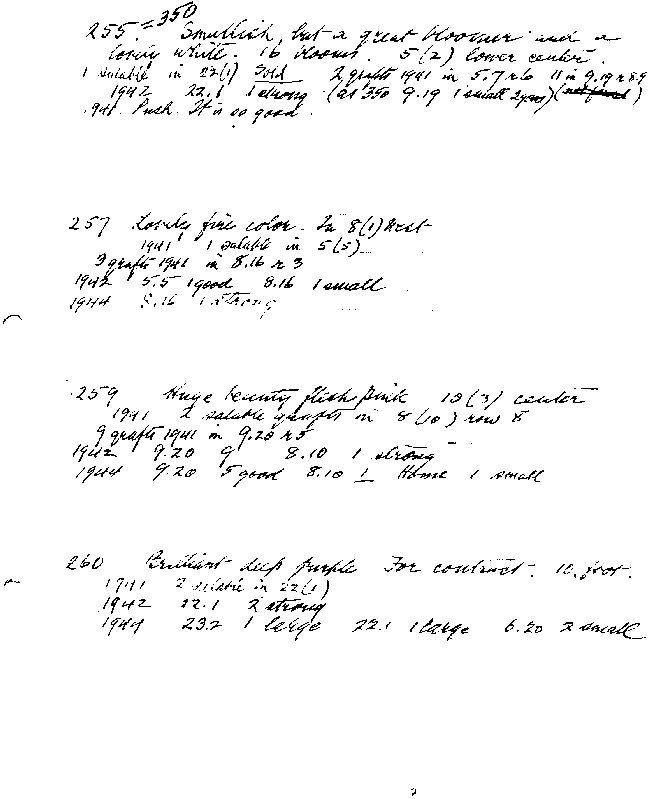 255. = 350 Smallish, but a great bloomer and a
lovely white. 16 blooms. 5(2) lower center.
1 salable in 22(1) Sold 2 grafts 1941 in 5.7 r 6 11 in 9.19 r 8.9
1942 22.1 1 strong (as 350 9.19 1 small 2 yrs) ( )
.941. Push. It is so good.
257 Lovely fine color. In 8(1) West
1941 1 salable in 5(5)
3 grafts 1941 in 8.16 r 3
1942 5.5 1 good 8.16 1 small
1944 8.16 1 strong
259 Huge beauty flesh pink 10(3) center
1941 2 salable grafts in 8(10) row 8
9 grafts 1941 in 9.20 r 5
1942 9.20 9 8.10 1 strong
1944 9.20 5 good 8.10 1 Home 1 small
260 Brilliant deep purple For contrast. 10. foot.
1941 2 salable in 22(1)
1942 22.1 2 strong
1944 23.2 1 large 22.1 1 large 6.20 2 small